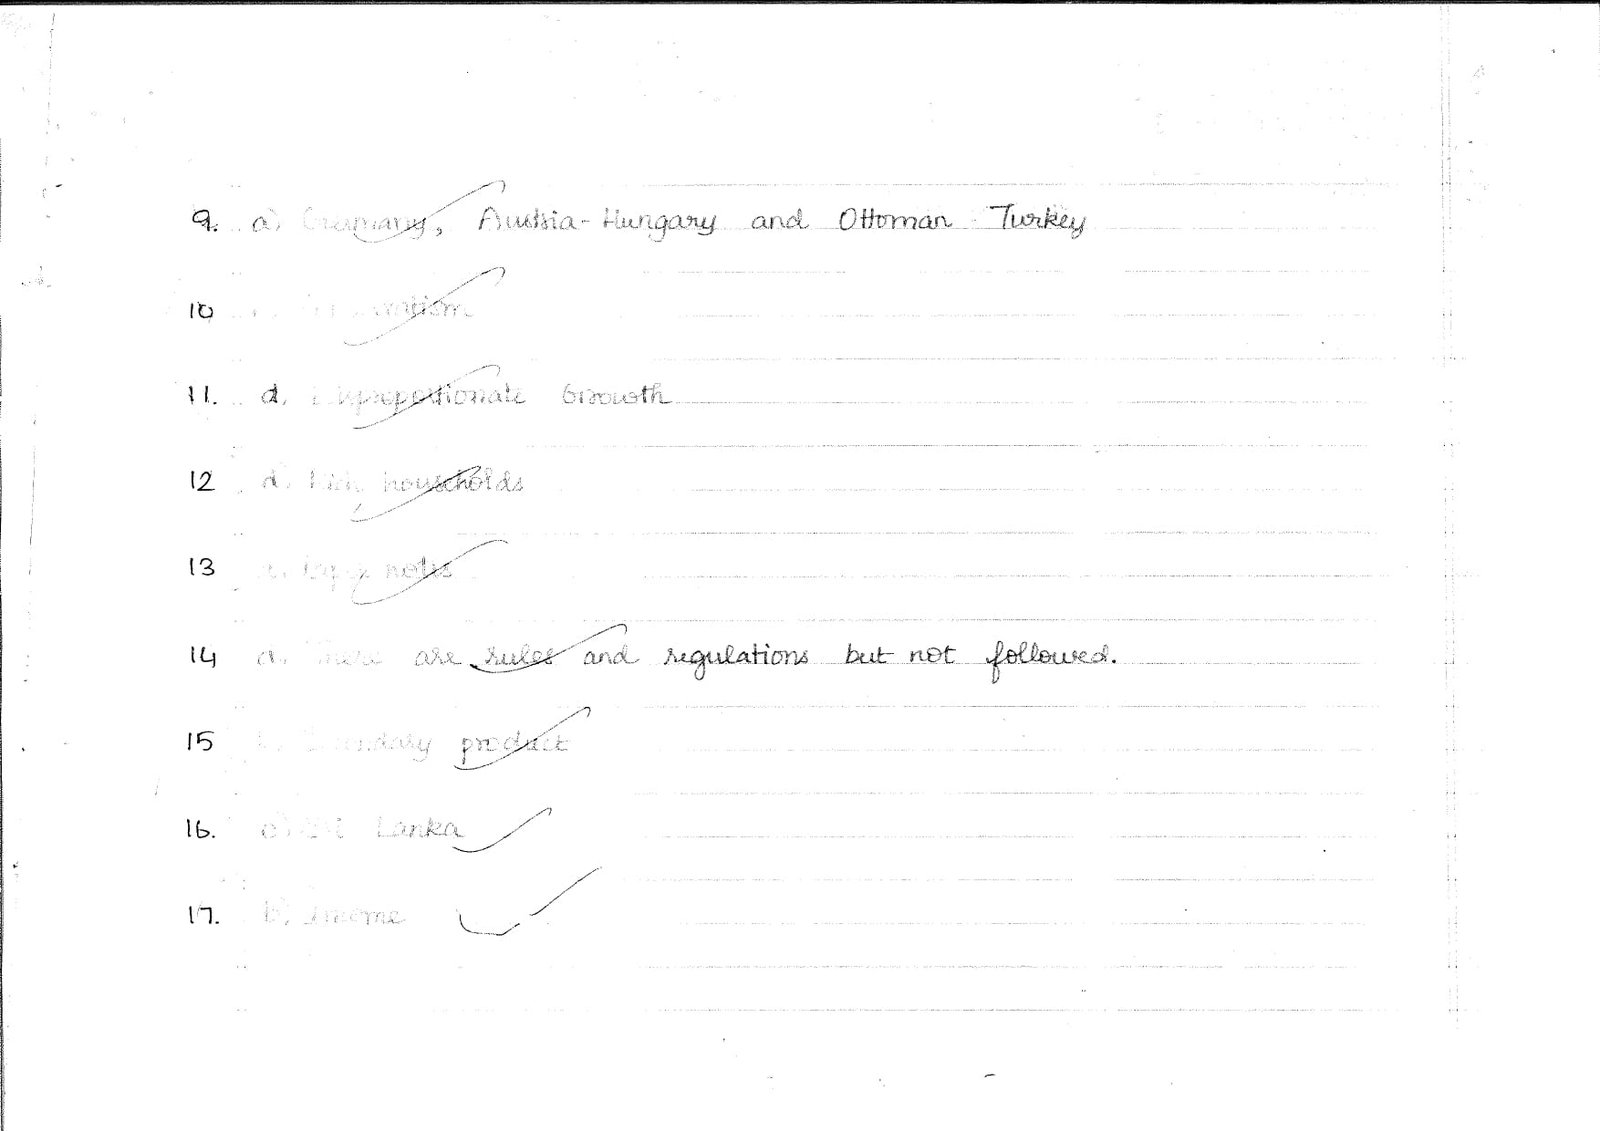 9. a) Germany, Austria-Hungary and Ottoman Turkey
10
11. d. Disproportionate Growth
12 d. Rich households
13 notes
14 a. There are rules and regulations but not followed.
15 product
16. c) Sri Lanka
17. b) Income